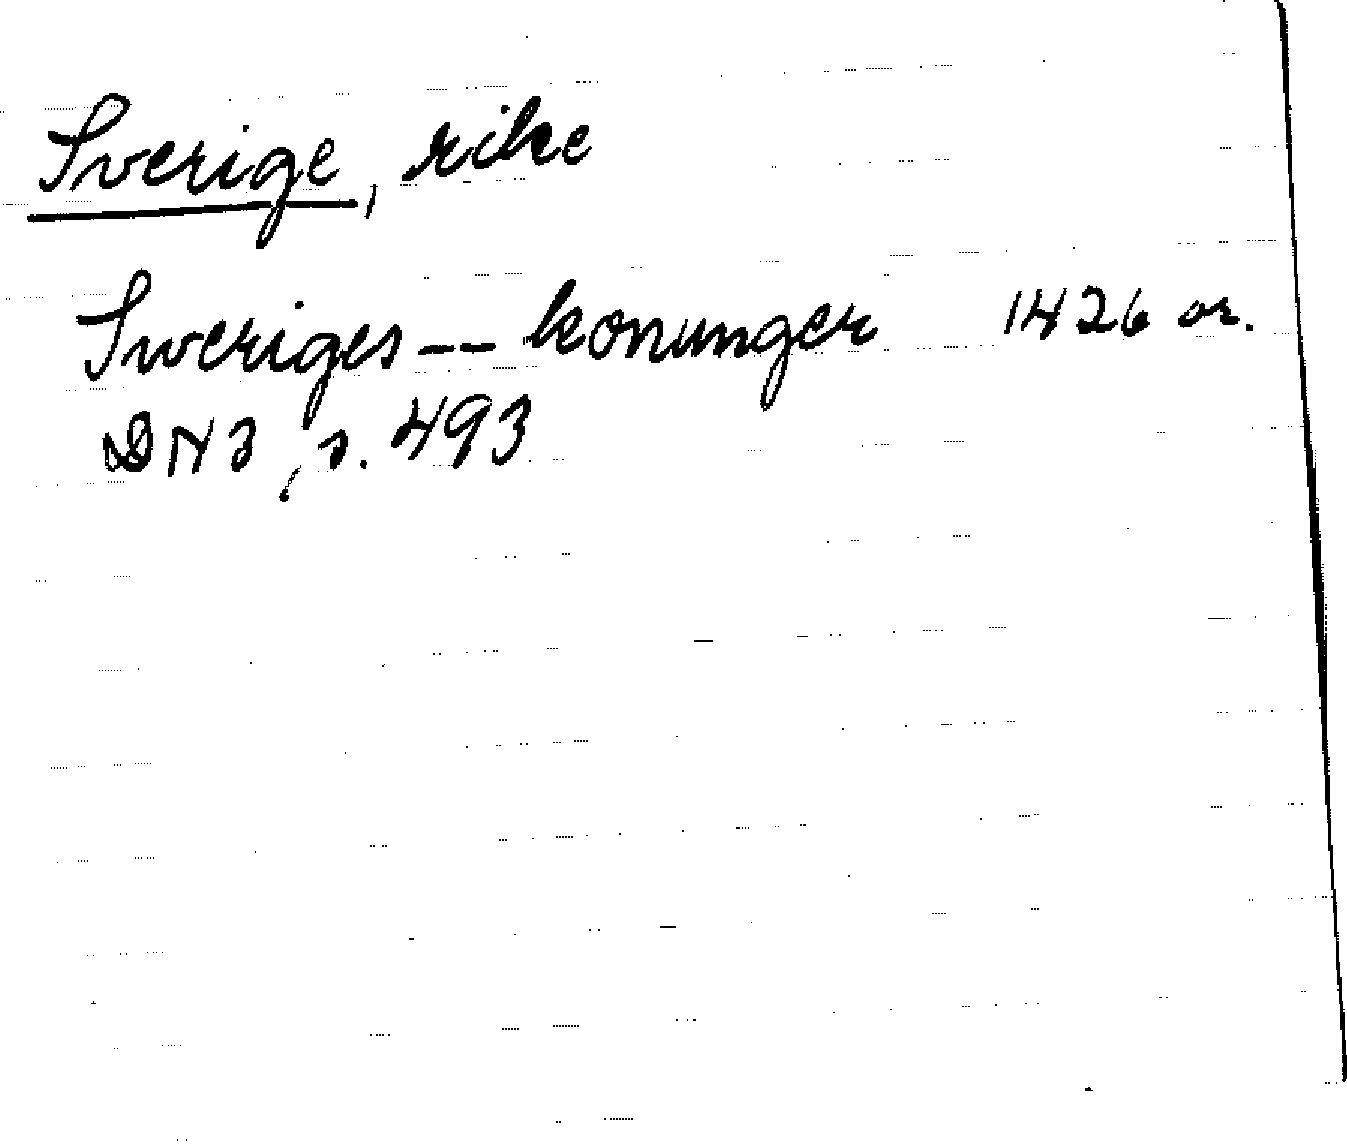 Sverige, rike
Sweriges -- konunger 1426 or.
DN3, s. 493